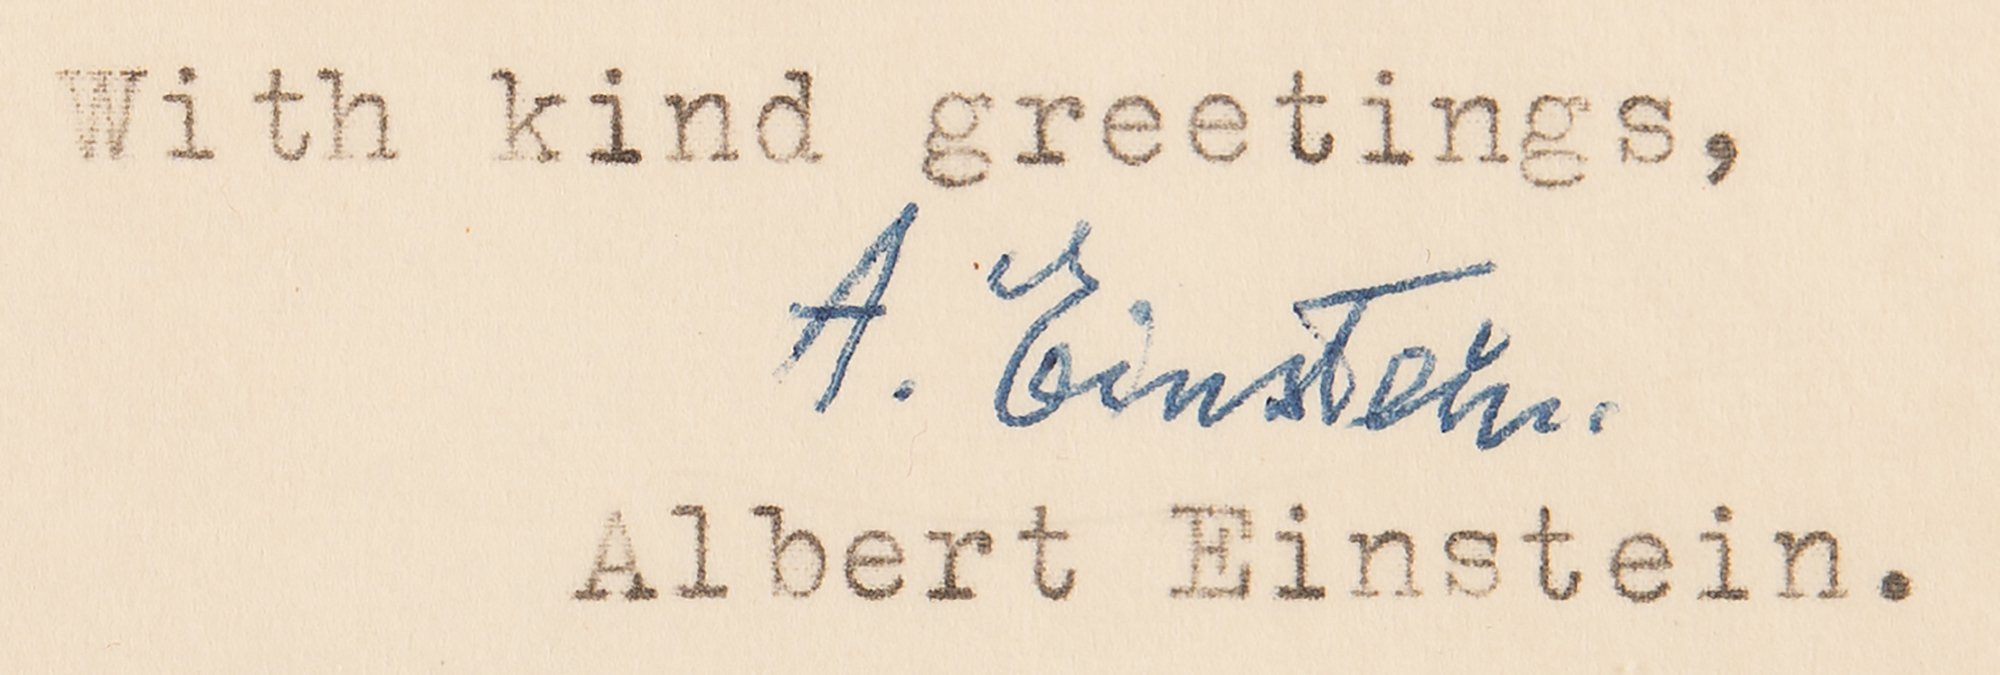 With kind greetings,
A. Einstein.
Albert Einstein.